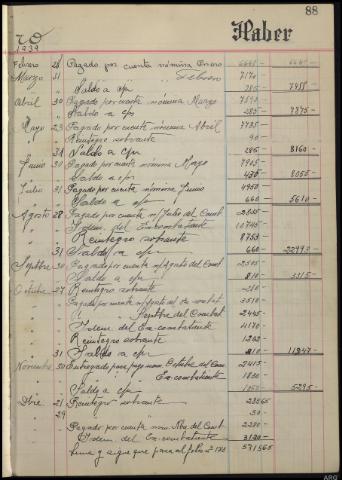 88
20
1939
Haber
Febrero 28 Pagado por cuenta nómina Enero 6645 6645
Marzo 31 " " " " Febrero 7170
" Saldo a c/n 285 7455
Abril 30 Pagado por cuenta nómina Marzo 7590
" Saldo a c/n 285 7875
Mayo 23 Pagado por cuenta nómina Abril 7785
" Reintegro sobrante 90
" 31 Saldo a c/n 285 8160
Junio 30 Pagado por cuenta nómina Mayo
Saldo a c/n 435 8055
Julio 31 Pagado por cuenta nómina Junio 4950
" Saldo a c/n 660 5610
Agosto 28 Pagado por cuenta n/ Julio del Comb
" Idem. del Excombatiente 10745
" Reintegro sobrante 8753
" 31 Saldo a c/n 660 22993
Septbre 30 Pagado por cuenta n/ Agsto del Comt 2505
" Saldo a c/n 810 3315
Octubre 27 Reintegro sobrante 210
" Pagado por cuenta n/ Agsto del Ex-combat 3510
" " Septbre del Combat 2445
" Idem del Ex-combatiente 4170
" Reintegro sobrante
" 31 Saldo a c/n 810
Noviembre 30 Entregado para pago nom. Octubre del Com 2415
" " Ex-combatiente 1830
" Saldo a c/n 1050 5295
Dbre 21 Reintegro sobrante
" 29 " " 30
Pagado por cuenta nom. Nbre del Cont
" Idem. del Ex-combatiente
Suma y sigue que pasa al folio nº
ARQ